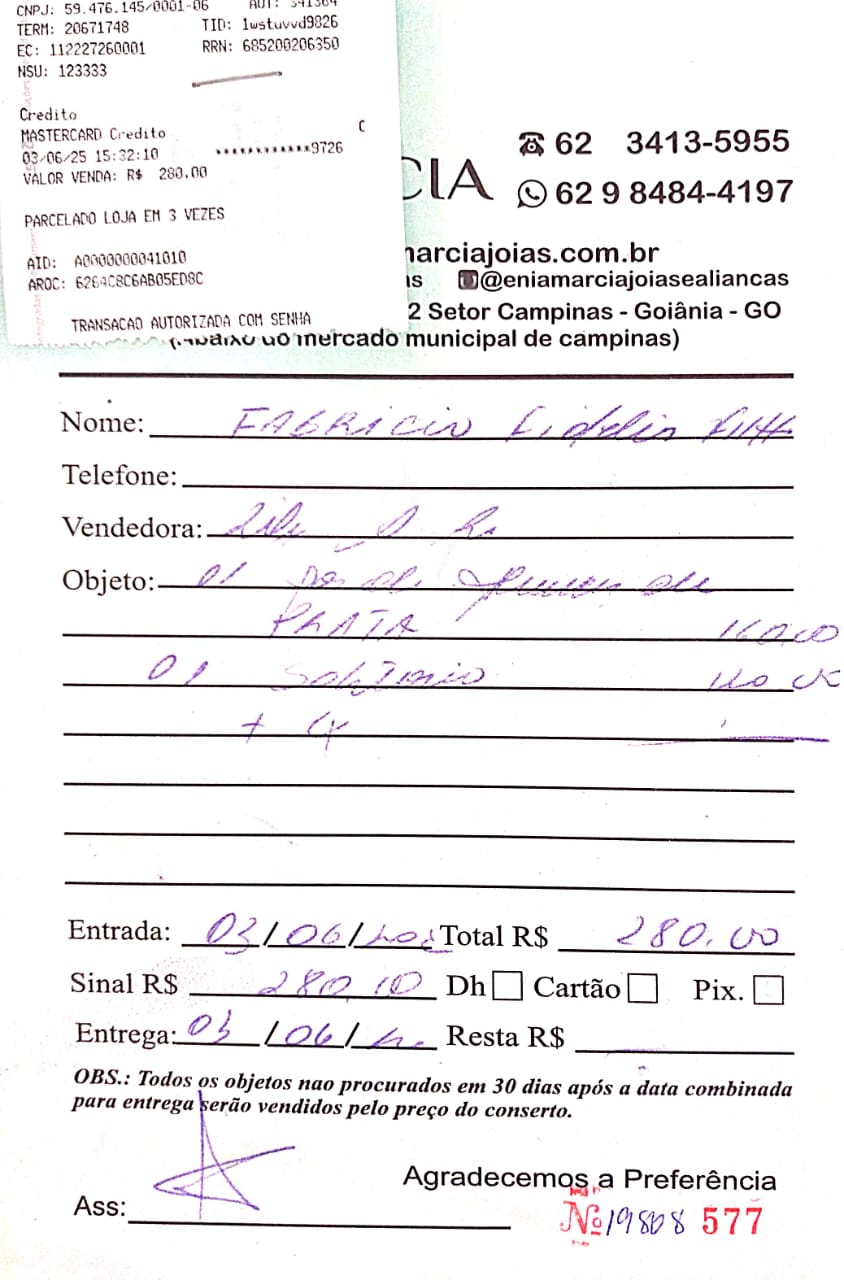 CNPJ: 59.476.145/0001-06 AUT: 341364
TERM: 20671748 TID: 1wstuvvd9826
EC: 112227260001 RRN: 685200206350
NSU: 123333
Credito
C
MASTERCARD Credito
03/06/25 15:32:10 ************9726
VALOR VENDA: R$ 280.00
PARCELADO LOJA EM 3 VEZES
AID: A0000000041010
ARQC: 6264C8C6AB05ED8C
TRANSACAO AUTORIZADA COM SENHA
CIA
62 3413-5955
62 9 8484-4197
marciajoias.com.br
as @eniamarciajoiasealiancas
2 Setor Campinas - Goiânia - GO
do mercado municipal de campinas)
Nome: FABRICIO Fidelis
Telefone:
Vendedora:
Objeto: 01 de
PRATA 160,00
01 Solitario
+
Entrada: 03/06/ Total R$ 280.00
Sinal R$ 280,00 Dh Cartão Pix.
Entrega: 03/06/ Resta R$
OBS.: Todos os objetos nao procurados em 30 dias após a data combinada
para entrega serão vendidos pelo preço do conserto.
Agradecemos a Preferência
Ass:
Nº 19808 577